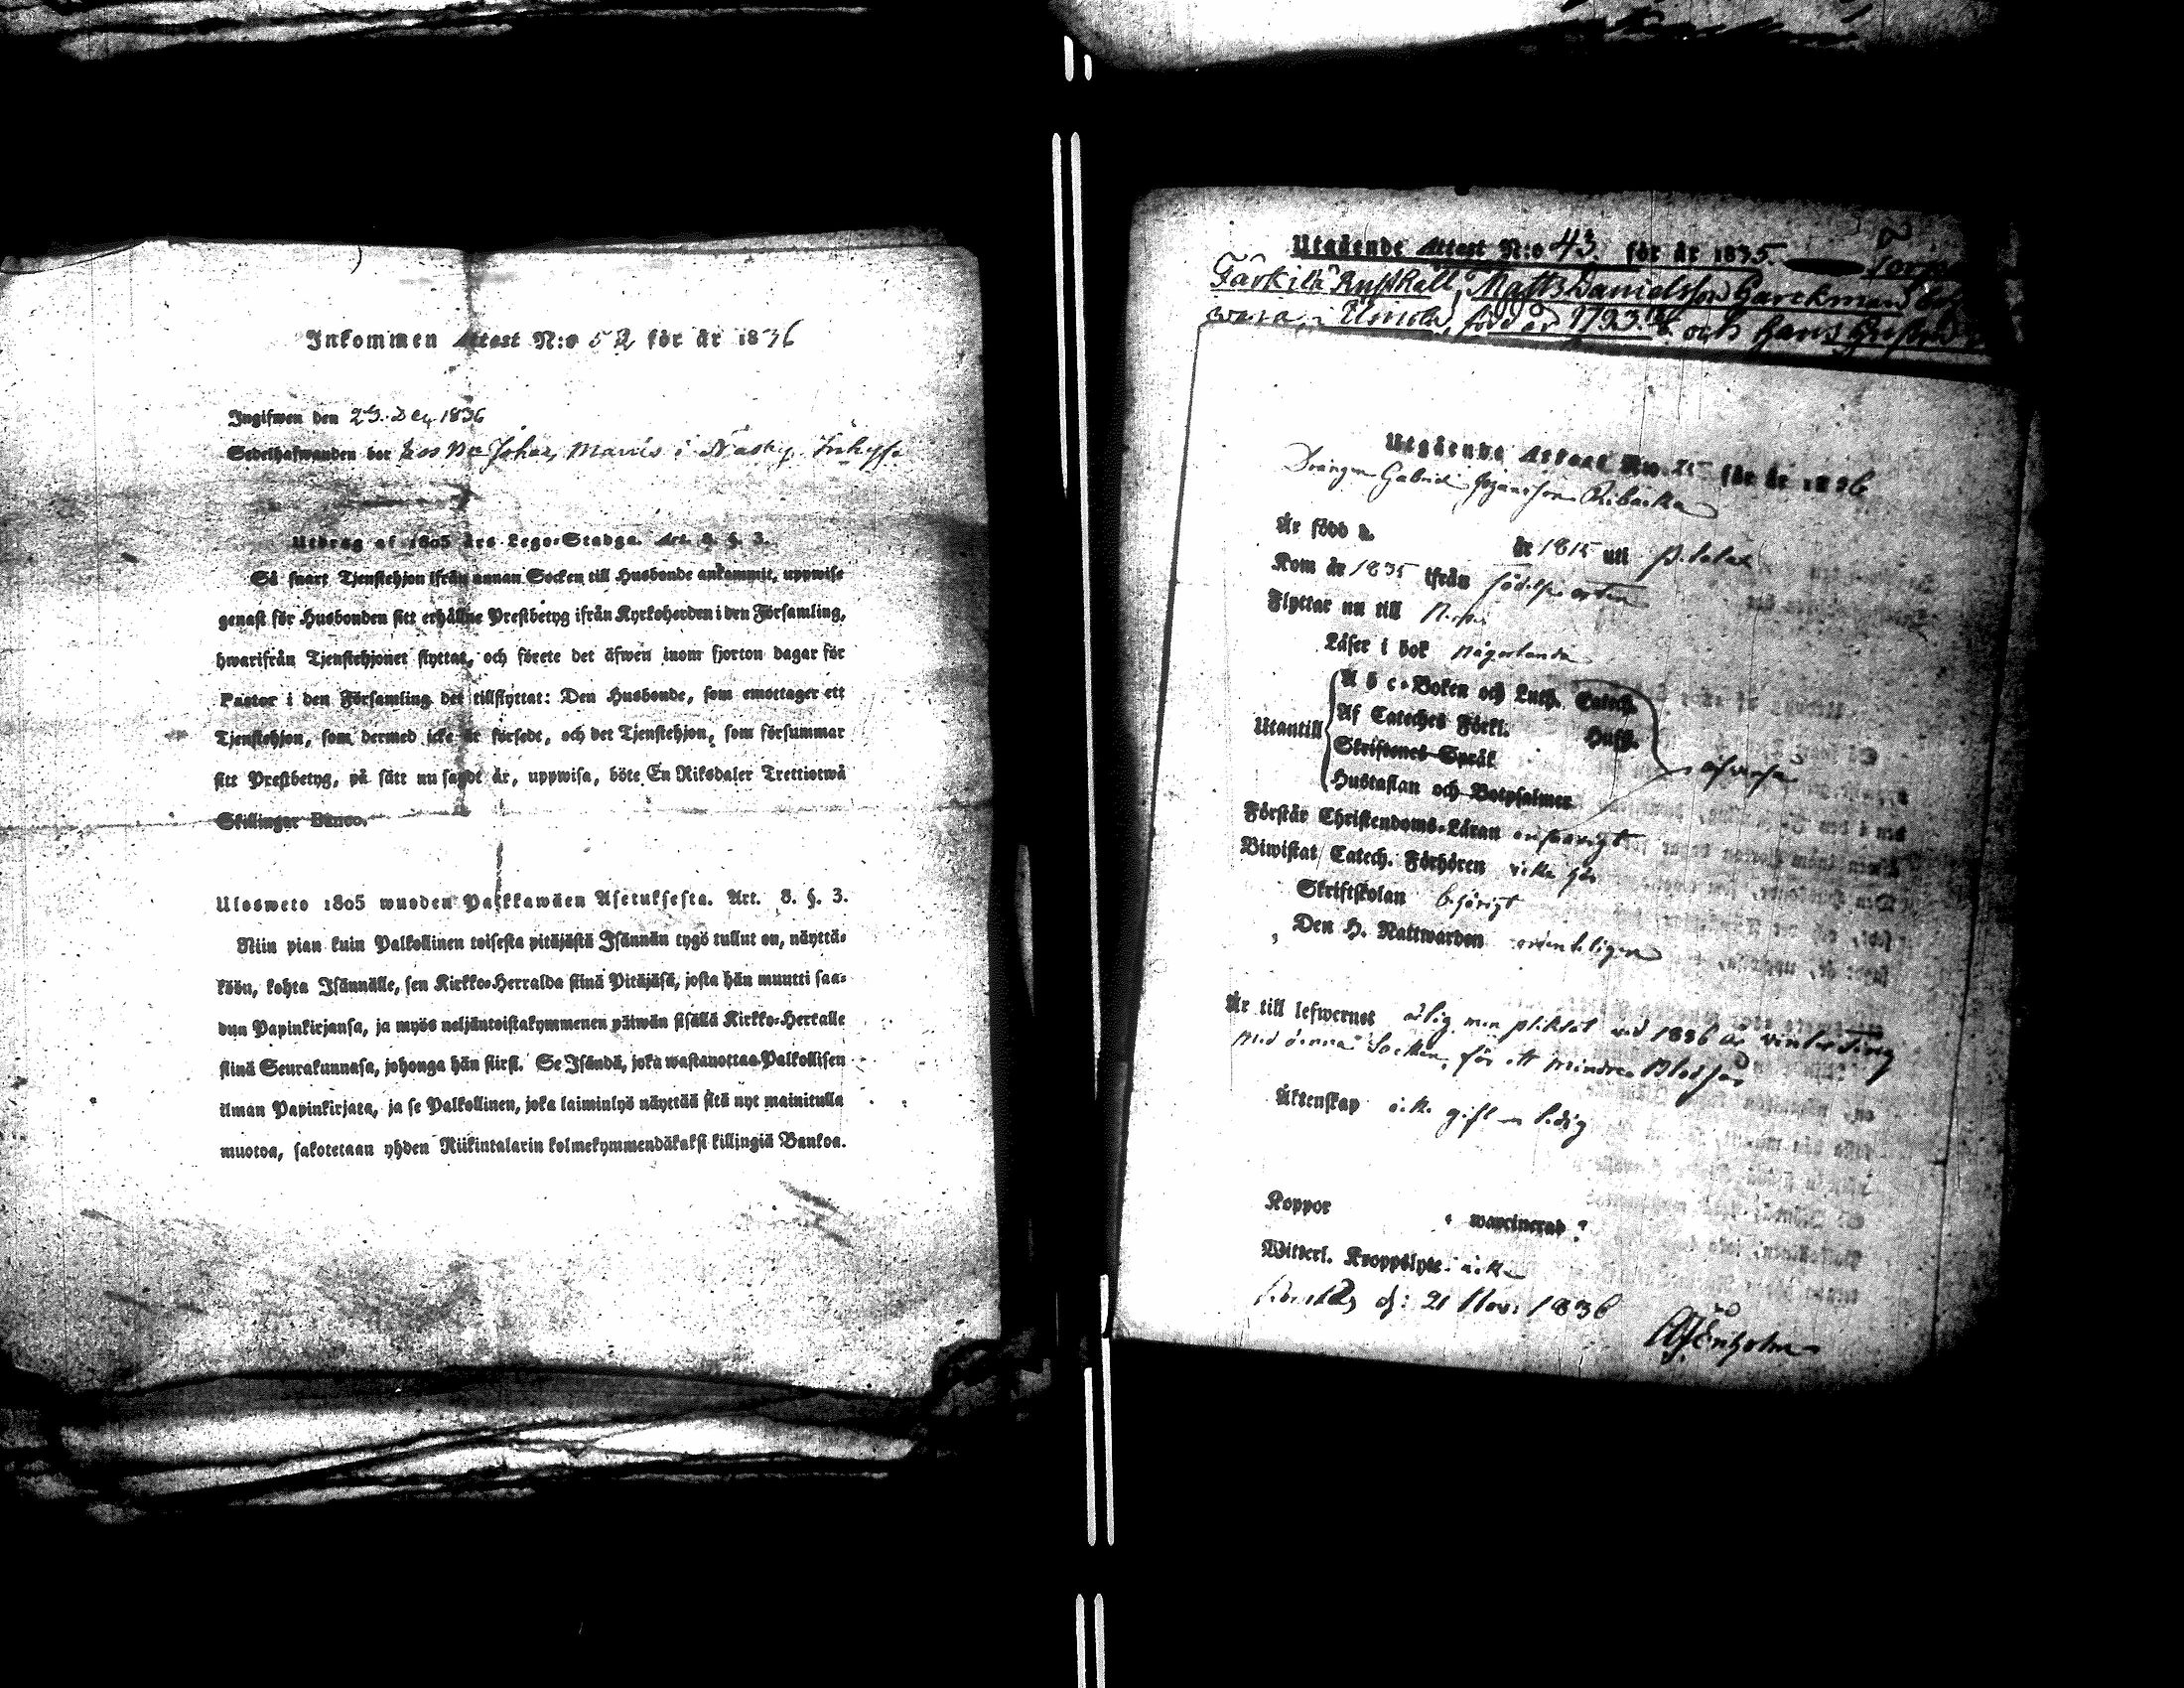 Inkommen Attest N:o 52 för år 1836
Ingifwen den 29. Dec 1836
Sedelhafwanden bor hos Johan i Näsby
Utdrag af 1805 års Lego-Stadga. Art. 8. §. 3.
Så snart Tjenstehjon ifrån annan Socken till Husbonde ankommit, uppwise
genast för Husbonden sitt erhållne Prestbetyg ifrån Kyrkoherden i den Församling,
hwarifrån Tjenstehjonet flyttat, och förete det äfwen inom fjorton dagar för
Pastor i den Församling det tillflyttat: Den Husbonde, som emottager ett
Tjenstehjon, som dermed icke är försedt, och det Tjenstehjon, som försummar
sitt Prestbetyg, på sätt nu sagdt är, uppwisa, böte En Riksdaler Trettiotwå
Skillingar Banco.
Ulosweto 1805 wuoden Palkkawäen Asetuksesta. Art. 8. §. 3.
Niin pian kuin Palkollinen toisesta pitäjästä Isännän tygö tullut on, näyttä-
köön, kohta Isännälle, sen Kirkko-Herralda siinä Pitäjäsä, josta hän muutti saa-
dun Papinkirjansa, ja myös neljäntoistakymmenen päiwän sisällä Kirkko-Herralle
siinä Seurakunnasa, johonga hän siirsi. Se Isändä, joka wastanottaa Palkollisen
ilman Papinkirjata, ja se Palkollinen, joka laiminlyö näyttää sitä nyt mainitulla
muotoa, sakotetaan yhden Riikintalarin kolmekymmendäkaksi killingiä Bankoa.
Utgående Attest N:o 43. för år 1835.
Rusthåll, Matts Danielsson Garckman
född år 1793 och hans Hustru
Utgående Attest N:o för år 1836
Drängen Gabriel Johansson Ribacka
Är född d. år 1815 uti
Kom år 1835 ifrån födelseorten
Flyttar nu till
Läser i bok någorlunda
A b c-Boken och Luth. Catech.
Af Cateches Förkl. Husf.
Utantill Skriftenes Språk
Hustaflan och Botpsalmer
Förstår Christendoms-Läran enfaldigt
Biwistat Catech. Förhören icke här
Skriftskolan behörigt
Den H. Nattwarden ordenteligen
Är till lefwernet ärlig, men pliktat wid 1836 års Winter Ting
med denna Socken, för ett mindre
Äktenskap icke gift ledig
Koppor waccinerad?
Witterl. Kroppslyte icke
d: 21 Nov: 1836